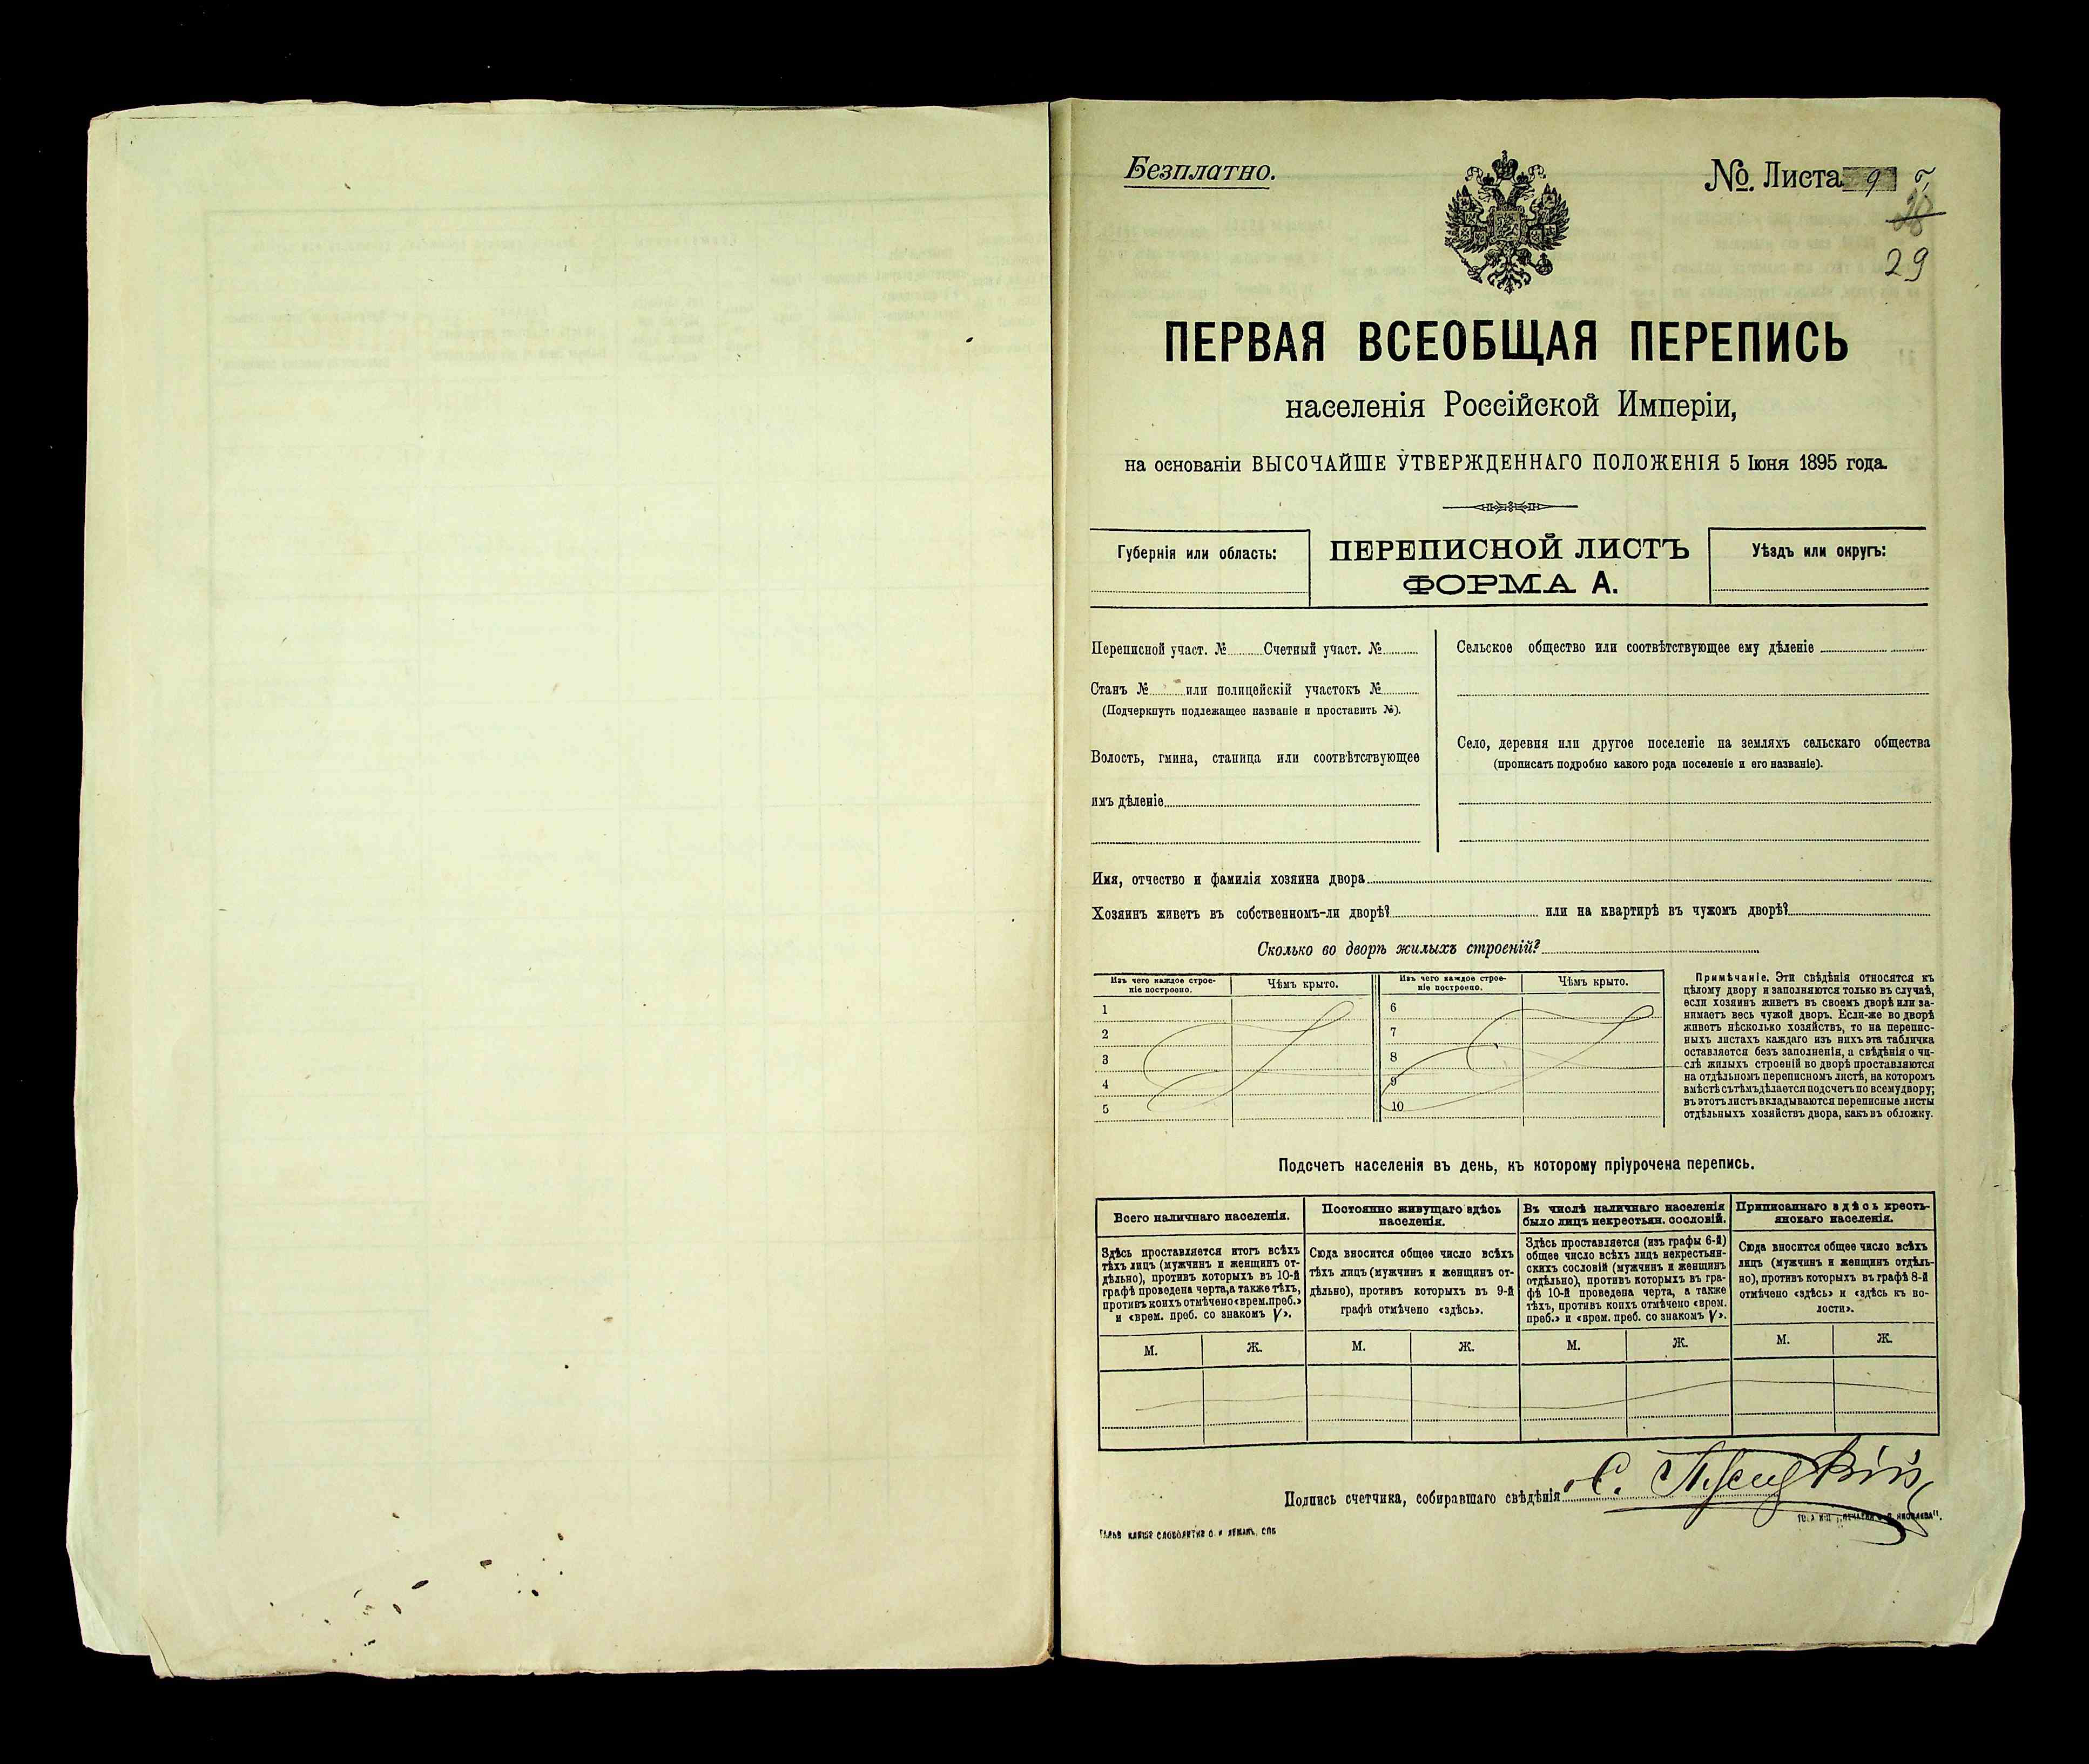 Безплатно.
№. Листа 9 б,
29
ПЕРВАЯ ВСЕОБЩАЯ ПЕРЕПИСЬ
населенія Россійской Имперіи,
на основаніи ВЫСОЧАЙШЕ УТВЕРЖДЕННАГО ПОЛОЖЕНІЯ 5 Іюня 1895 года.
Губернія или область:
ПЕРЕПИСНОЙ ЛИСТЪ
ФОРМА А.
Уѣздъ или округъ:
Переписной участ. № Счетный участ. №
Станъ № или полицейскій участокъ №
(Подчеркнуть подлежащее названіе и проставить №).
Волость, гмина, станица или соотвѣтствующее
имъ дѣленіе
Сельское общество или соотвѣтствующее ему дѣленіе
Село, деревня или другое поселеніе на земляхъ сельскаго общества
(прописать подробно какого рода поселеніе и его названіе).
Имя, отчество и фамилія хозяина двора
Хозяинъ живетъ въ собственномъ-ли дворѣ? или на квартирѣ въ чужомъ дворѣ?
Сколько во дворѣ жилыхъ строеній?
Изъ чего каждое строе-
ніе построено.
Чѣмъ крыто.
1
2
3
4
5
Изъ чего каждое строе-
ніе построено.
Чѣмъ крыто.
6
7
8
9
10
Примѣчаніе. Эти свѣдѣнія относятся къ
цѣлому двору и заполняются только въ случаѣ,
если хозяинъ живетъ въ своемъ дворѣ или за-
нимаетъ весь чужой дворъ. Если-же во дворѣ
живетъ нѣсколько хозяйствъ, то на перепис-
ныхъ листахъ каждаго изъ нихъ эта табличка
оставляется безъ заполненія, а свѣдѣнія о чи-
слѣ жилыхъ строеній во дворѣ проставляются
на отдѣльномъ переписномъ листѣ, на которомъ
вмѣстѣ съ тѣмъ дѣлается подсчетъ по всему двору;
въ этотъ листъ вкладываются переписные листы
отдѣльныхъ хозяйствъ двора, какъ въ обложку.
Подсчетъ населенія въ день, къ которому пріурочена перепись.
Всего наличнаго населенія.
Здѣсь проставляется итогъ всѣхъ
тѣхъ лицъ (мужчинъ и женщинъ от-
дѣльно), противъ которыхъ въ 10-й
графѣ проведена черта, а также тѣхъ,
противъ коихъ отмѣчено «врем. преб.»
и «врем. преб. со знакомъ V».
М. Ж.
Постоянно живущаго здѣсь
населенія.
Сюда вносится общее число всѣхъ
тѣхъ лицъ (мужчинъ и женщинъ от-
дѣльно), противъ которыхъ въ 9-й
графѣ отмѣчено «здѣсь».
М. Ж.
Въ числѣ наличнаго населенія
было лицъ некрестьян. сословій.
Здѣсь проставляется (изъ графы 6-й)
общее число всѣхъ лицъ некрестьян-
скихъ сословій (мужчинъ и женщинъ
отдѣльно), противъ которыхъ въ гра-
фѣ 10-й проведена черта, а также
тѣхъ, противъ коихъ отмѣчено «врем.
преб.» и «врем. преб. со знакомъ V».
М. Ж.
Приписаннаго здѣсь кресть-
янскаго населенія.
Сюда вносится общее число всѣхъ
лицъ (мужчинъ и женщинъ отдѣль-
но), противъ которыхъ въ графѣ 8-й
отмѣчено «здѣсь» и «здѣсь къ во-
лости».
М. Ж.
Подпись счетчика, собиравшаго свѣдѣнія С.
СЛОВОЛИТНЯ О. И. ЛЕМАНЪ, СПБ